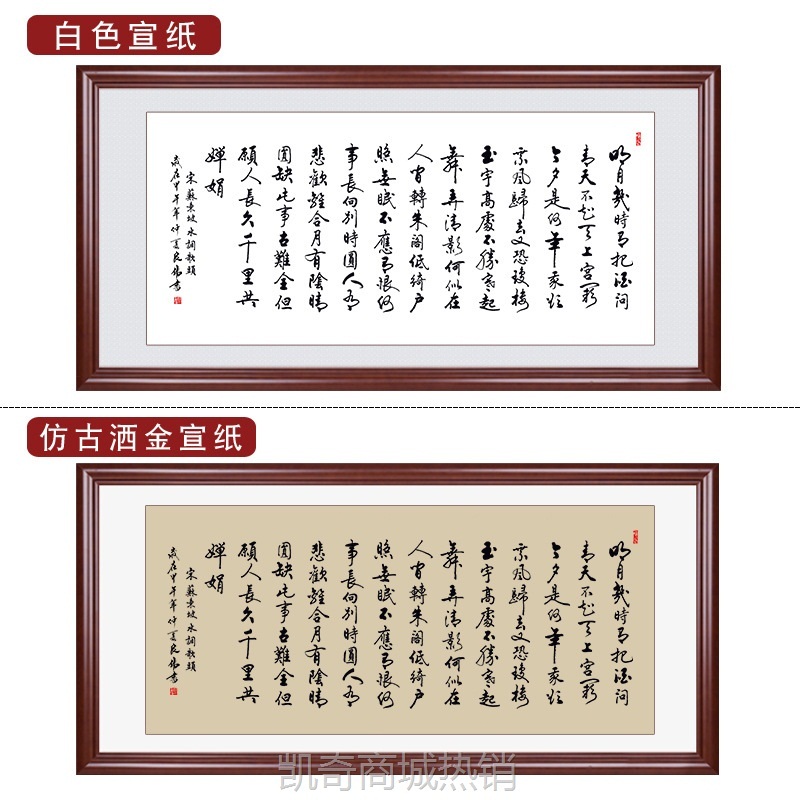 白色宣纸
明月幾时有把酒问
青天不知天上宫阙
今夕是何年我欲
乘風歸去又恐瓊樓
玉宇高處不勝寒起
舞弄清影何似在
人间轉朱阁低绮户
照無眠不應有恨何
事長向别時圓人有
悲歡離合月有陰晴
圆缺此事古難全但
願人長久千里共
嬋娟
宋蘇東坡水調歌頭
歲在甲午年仲夏書
仿古洒金宣纸
明月幾时有把酒问
青天不知天上宫阙
今夕是何年我欲
乘風歸去又恐瓊樓
玉宇高處不勝寒起
舞弄清影何似在
人间轉朱阁低绮户
照無眠不應有恨何
事長向别時圓人有
悲歡離合月有陰晴
圆缺此事古難全但
願人長久千里共
嬋娟
宋蘇東坡水調歌頭
歲在甲午年仲夏書
凯奇商城热销